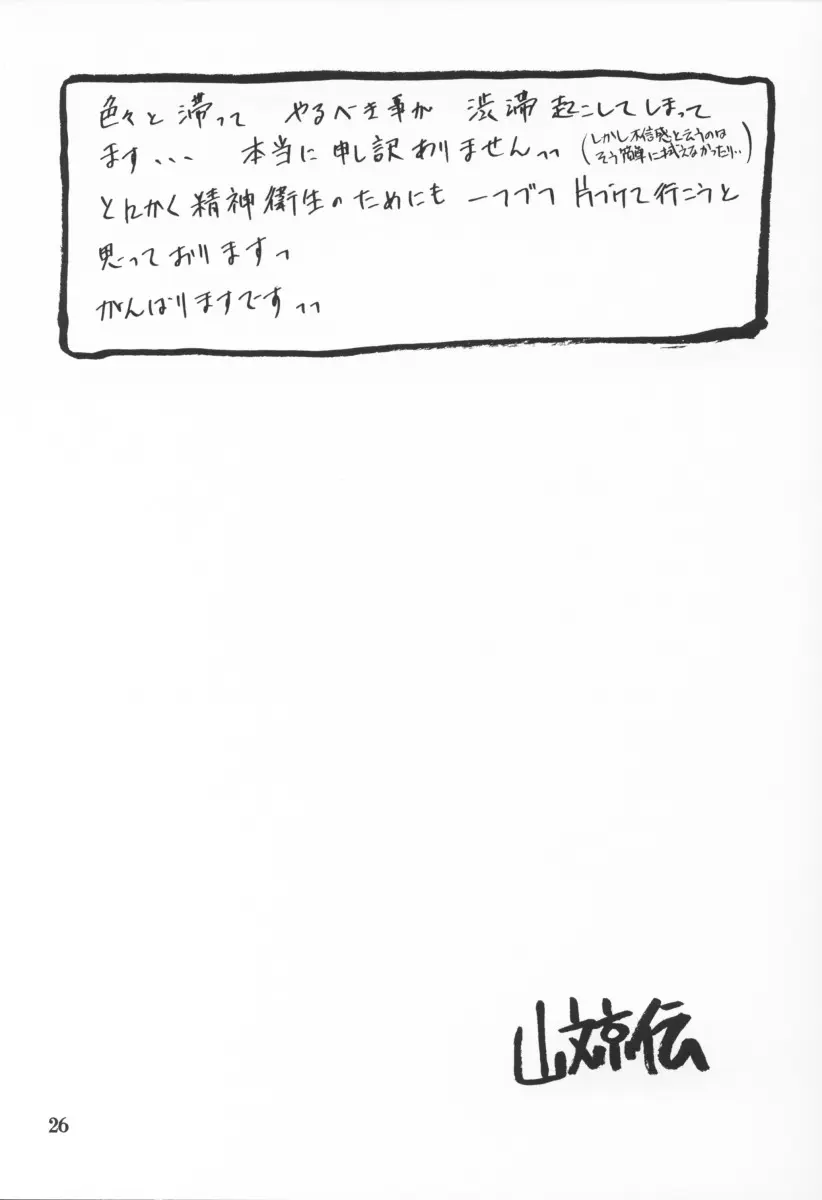 色々と滞って やるべき事が 渋滞起こしてしまって
ます、、、 本当に申し訳ありませんっっ
(しかし不信感と云うのは
そう簡単に拭えなかったり‥)
とにかく精神衛生のためにも 一つづつ 片づけて行こうと
思っておりますっ
がんばりますですっっ
山文京伝
26